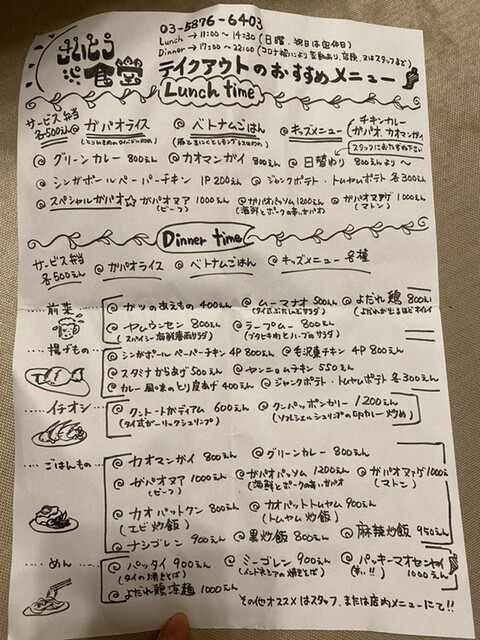 さいとう食堂
03-5876-6403
Lunch → 11:00〜14:30 (日曜、祝日は定休日)
Dinner → 17:00〜22:00
テイクアウトのおすすめメニュー
Lunch time
サービス弁当 各500えん @ ガパオライス @ ベトナムごはん @ キッズメニュー チキンカレー ガパオ、カオマンガイ
スタッフにおたずね下さい
@ グリーンカレー 800えん @ カオマンガイ 800えん @ 日替わり 800えより〜
@ シンガポールペーパーチキン 1P 200えん @ ジャンクポテト・トムヤムポテト 各300えん
@ スペシャルガパオ☆ ガパオヌア 1000えん @ ガパオパッソム 1200えん @ ガパオマァゲ 1000えん
(ビーフ) (海鮮とポークの辛いガパオ) (マトン)
Dinner time
サービス弁当 各500えん @ ガパオライス @ ベトナムごはん @ キッズメニュー 各種
前菜
@ ガツのあえもの 400えん @ ムーマナオ 500えん @ よだれ鶏 800えん
(タイ式ぶたしゃぶサラダ) (よだれが出るほどオイシイ)
@ ヤムウンセン 800えん @ ラープムー 800えん
(スパイシー海鮮春雨サラダ) (ブタひき肉とハーブのサラダ)
揚げもの
@ シンガポール ペーパーチキン 4P 800えん @ 毛沢東チキン 4P 800えん
@ スタミナからあげ 500えん @ ヤンニョムチキン 550えん
@ カレー風味のとり皮あげ 400えん @ ジャンクポテト・トムヤムポテト 各300えん
イチオシ
@ クントートガティアム 600えん @ クンパッポンカリー 1200えん
(タイ式ガーリックシュリンプ) (ソフトシェルシュリンプの卵カレー炒め)
ごはんもの
@ カオマンガイ 800えん @ グリーンカレー 800えん
@ ガパオヌア 1000えん @ ガパオパッソム 1200えん @ ガパオマァゲ 1000えん
(ビーフ) (海鮮とポークの辛いガパオ) (マトン)
@ カオパットクン 800えん @ カオパットトムヤム 900えん
(エビ炒飯) (トムヤム炒飯)
@ ナシゴレン 900えん @ 黒炒飯 800えん @ 麻辣炒飯 950えん
めん
@ パッタイ 900えん @ ミーゴレン 900えん @ パッキーマオセンヤイ
(タイの焼きそば) (インドネシアの焼きそば) (辛い!!) 1000えん
@ よだれ鶏涼麺 1000えん
その他オススメはスタッフ、または店内メニューにて!!